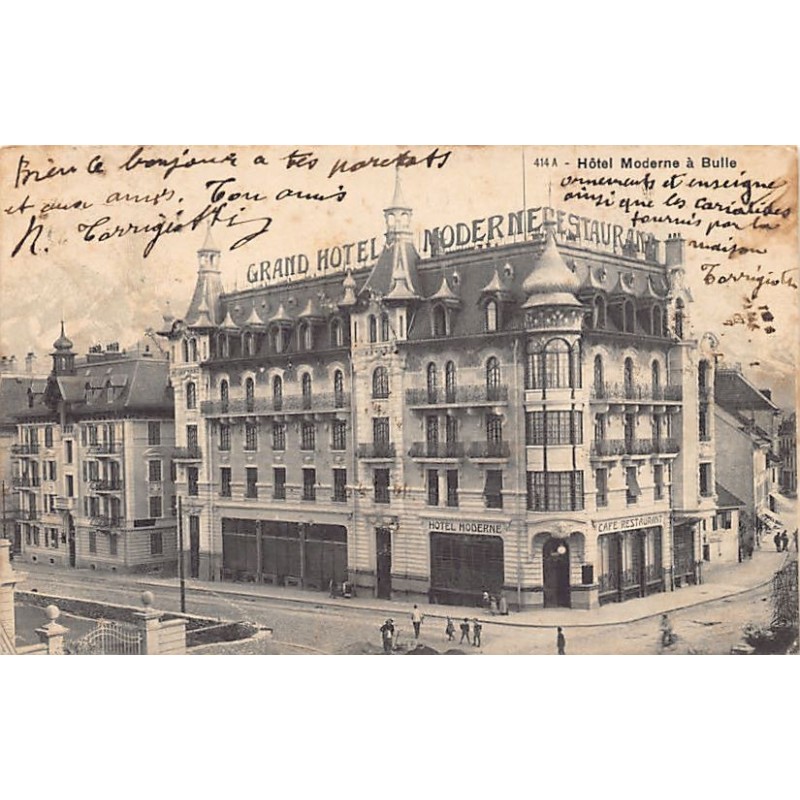 Bien le bonjour a tes parents
et aux amis. Ton amis
N. Torrigiotti
414 A - Hôtel Moderne à Bulle
ornements et enseigne
ainsi que les cariatides
fournis par la
maison
Torrigiotti
GRAND HOTEL MODERNE RESTAURANT
HOTEL MODERNE
CAFE RESTAURANT